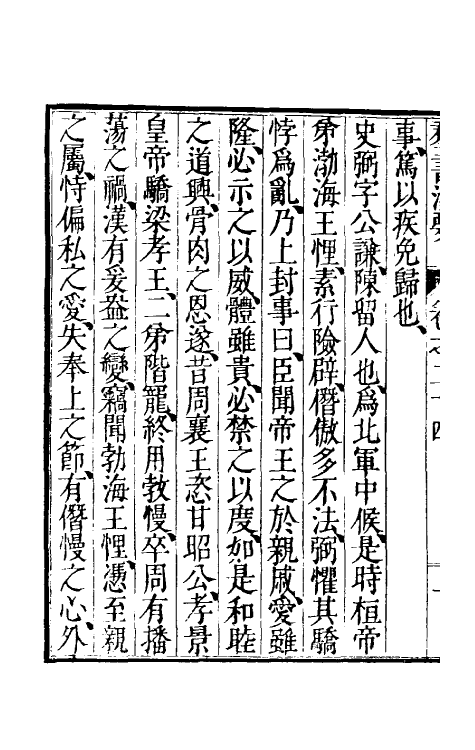 羣書治要 卷之二十四
事、篤以疾免歸也、
史弼字公謙、陳留人也、爲北軍中候、是時桓帝
弟渤海王悝、素行險辟、僭傲多不法、弼懼其驕
悖爲亂、乃上封事曰、臣聞帝王之於親戚、愛雖
隆、必示之以威、體雖貴、必禁之以度、如是和睦
之道興、骨肉之恩遂、昔周襄王恣甘昭公、孝景
皇帝驕梁孝王、二弟階寵、終用敦慢、卒周有播
蕩之禍、漢有爰盎之變、竊聞勃海王悝、憑至親
之屬、恃偏私之愛、失奉上之節、有僭慢之心、外